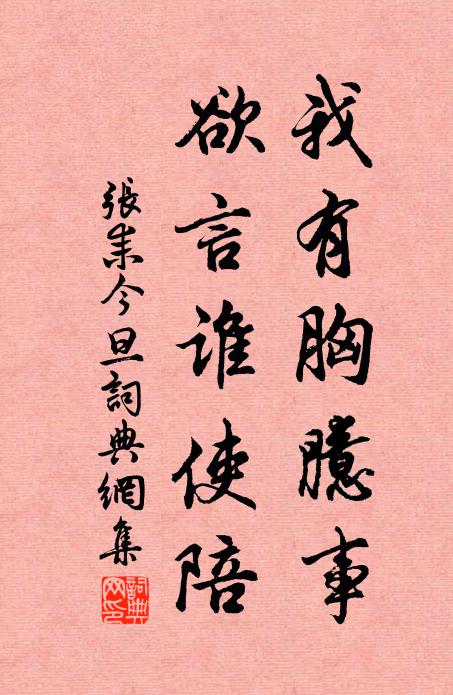 我有胸臆事
欲言谁使陪
張耒今旦詞典網集
詞典网印